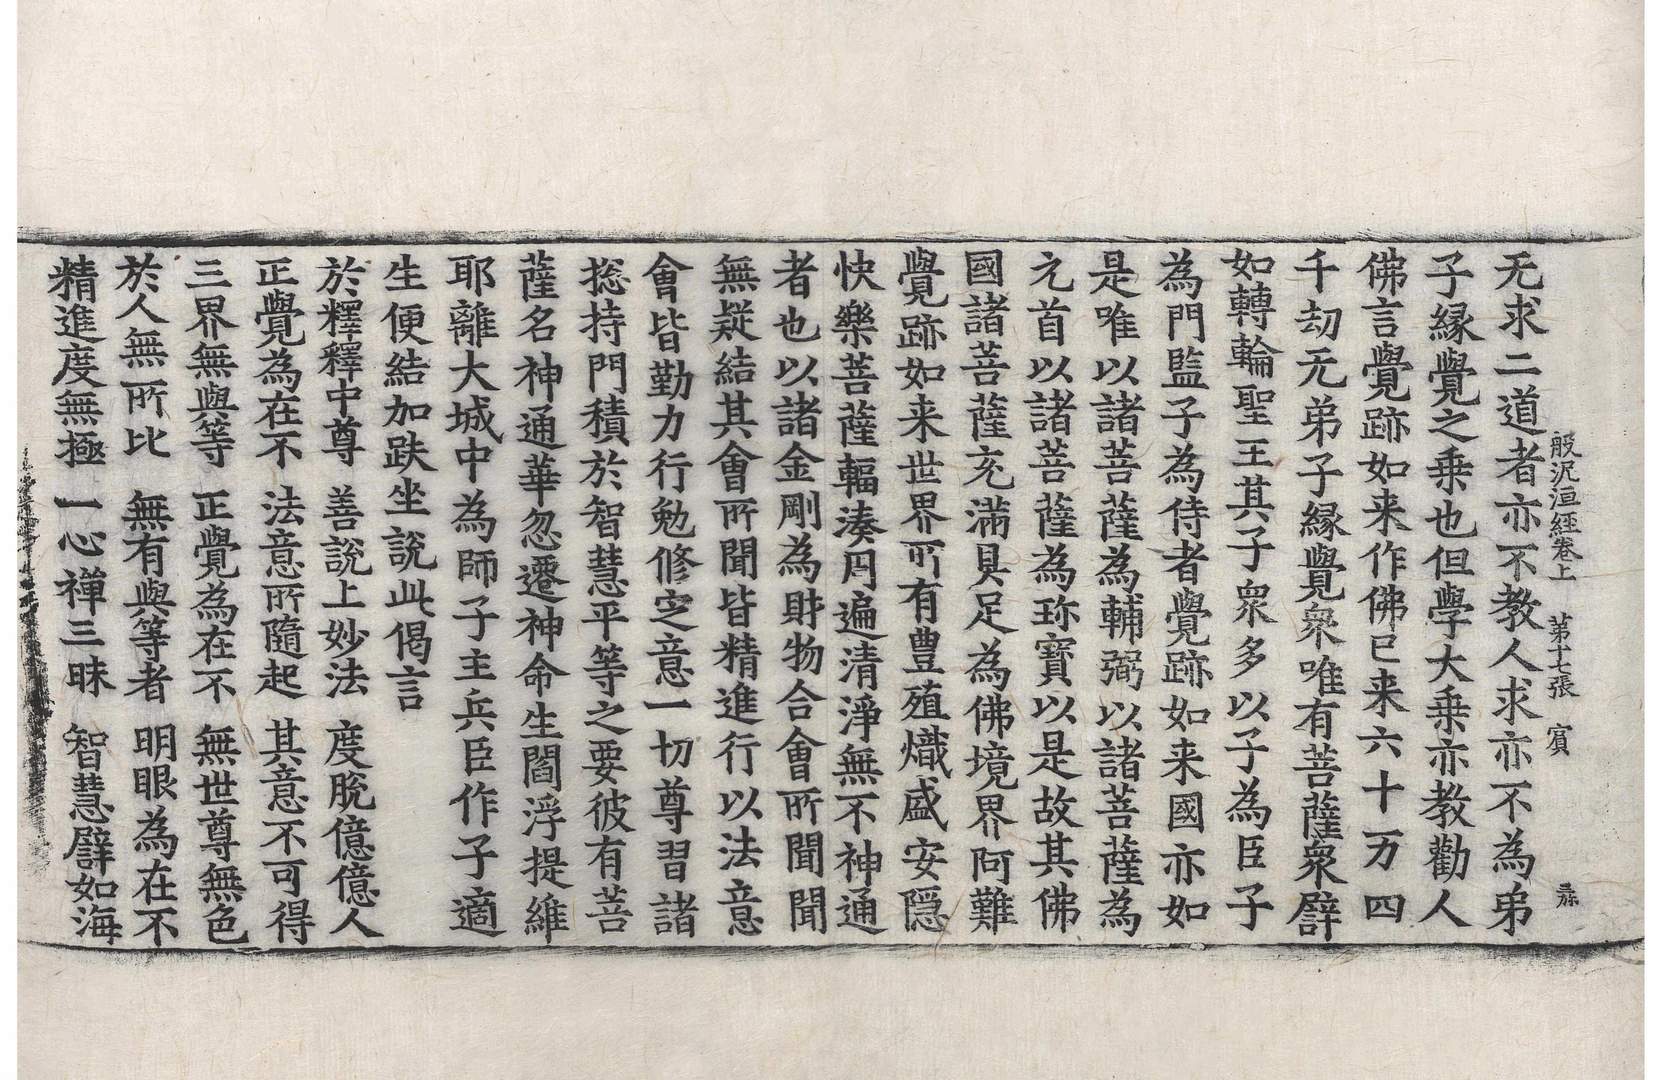 般泥洹經卷上 第十七張 賓
无求二道者亦不教人求亦不為弟
子縁覺之乗也但學大乗亦教勸人
佛言覺跡如来作佛已来六十万四
千劫无弟子縁覺衆唯有菩薩衆譬
如轉輪聖王其子衆多以子為臣子
為門監子為侍者覺跡如来國亦如
是唯以諸菩薩為輔弼以諸菩薩為
元首以諸菩薩為珎寶以是故其佛
國諸菩薩充滿具足為佛境界阿難
覺跡如来世界所有豊殖熾盛安隱
快樂菩薩輻湊周遍清淨無不神通
者也以諸金剛為財物合會所聞聞
無疑結其會所聞皆精進行以法意
會皆勤力行勉修定意一切尊習諸
捴持門積於智慧平等之要彼有菩
薩名神通華忽遷神命生閻浮提維
耶離大城中為師子主兵臣作子適
生便結加趺坐說此偈言
於釋釋中尊 善說上妙法 度脫億億人
正覺為在不 法意所隨起 其意不可得
三界無與等 正覺為在不 無世尊無色
於人無所比 無有與等者 明眼為在不
精進度無極 一心禪三昧 智慧譬如海